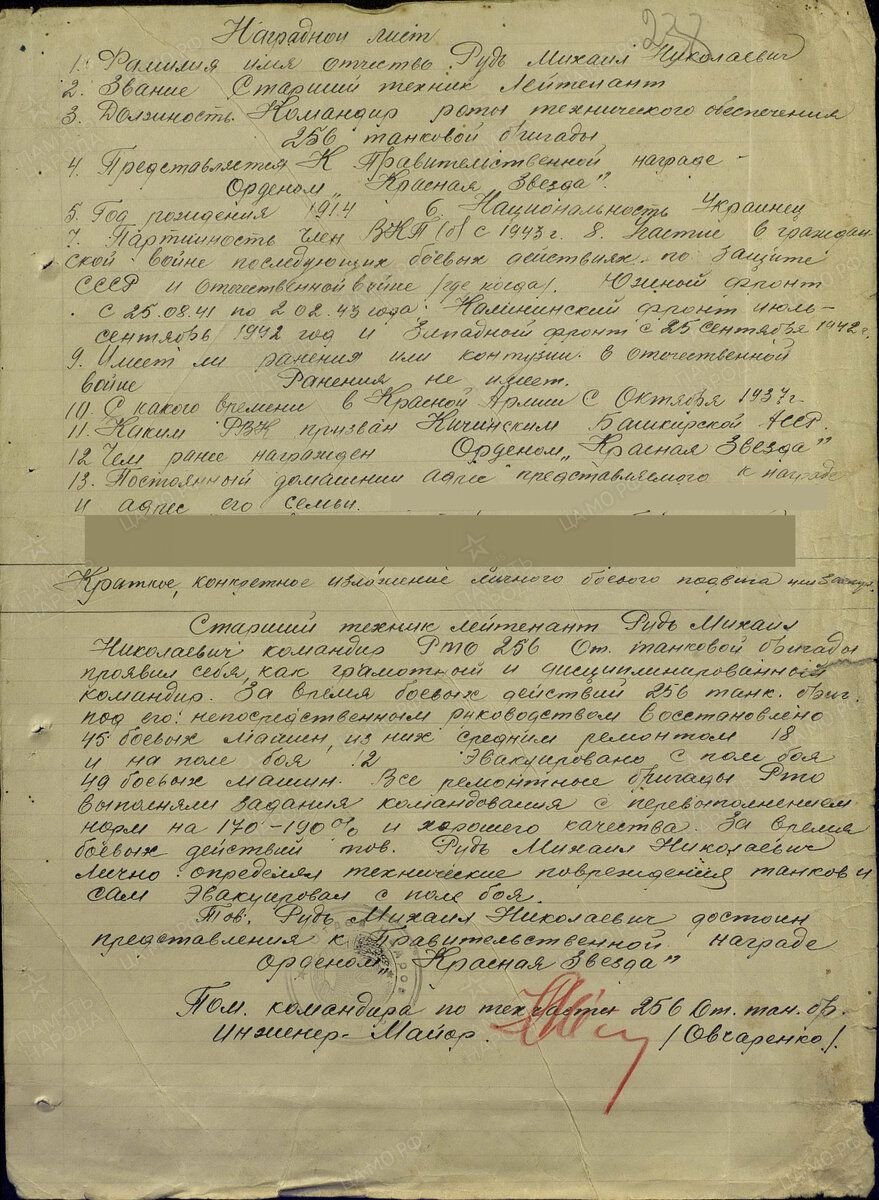 238
Наградной лист
1. Фамилия имя отчество Рудь Михаил Николаевич
2. Звание Старший техник Лейтенант
3. Должность. Командир роты технического обеспечения
256 танковой бригады
4. Представляется К Правительственной награде -
Орденом „Красная Звезда".
5. Год рождения 1914 6. Национальность Украинец
7. Партийность член ВКП(б) с 1943 г. 8. Участие в граждан-
ской войне последующих боевых действиях по защите
СССР и отечественной войне (где когда). Южный фронт
с 25.08.41 по 2 02.43 года. Калининский фронт июль-
сентябрь 1942 год и Западной фронт с 25 сентября 1942 г.
9. Имеет ли ранения или контузии в отечественной
войне Ранения не имеет.
10. С какого времени в Красной Армии С Октября 1937 г.
11. Каким РВК призван Кичинским Башкирской АССР.
12 Чем ранее награжден Орденом „Красная Звезда"
13. Постоянный домашний адрес представляемого к награде
и адрес его семьи.
Краткое, конкретное изложение личного боевого подвига или заслуг.
Старший техник лейтенант Рудь Михаил
Николаевич командир Рто 256 От. танковой бригады
проявил себя, как грамотный и дисциплинированный
командир. За время боевых действий 256 танк. бриг.
под его непосредственным руководством восстановлено
45 боевых машин, из них средним ремонтом 18
и на поле боя 12 Эвакуировано с поле боя
49 боевых машин. Все ремонтные бригады Рто
выполняли задания командования с перевыполнением
норм на 170-190% и хорошего качества. За время
боевых действий тов. Рудь Михаил Николаевич
лично определял технические повреждения танков и
сам эвакуировал с поле боя.
Тов. Рудь Михаил Николаевич достоин
представления к Правительственной награде
орденом „Красная Звезда"
Пом. командира по техчасти 256 От. тан. бр.
инженер-Майор (Овчаренко).